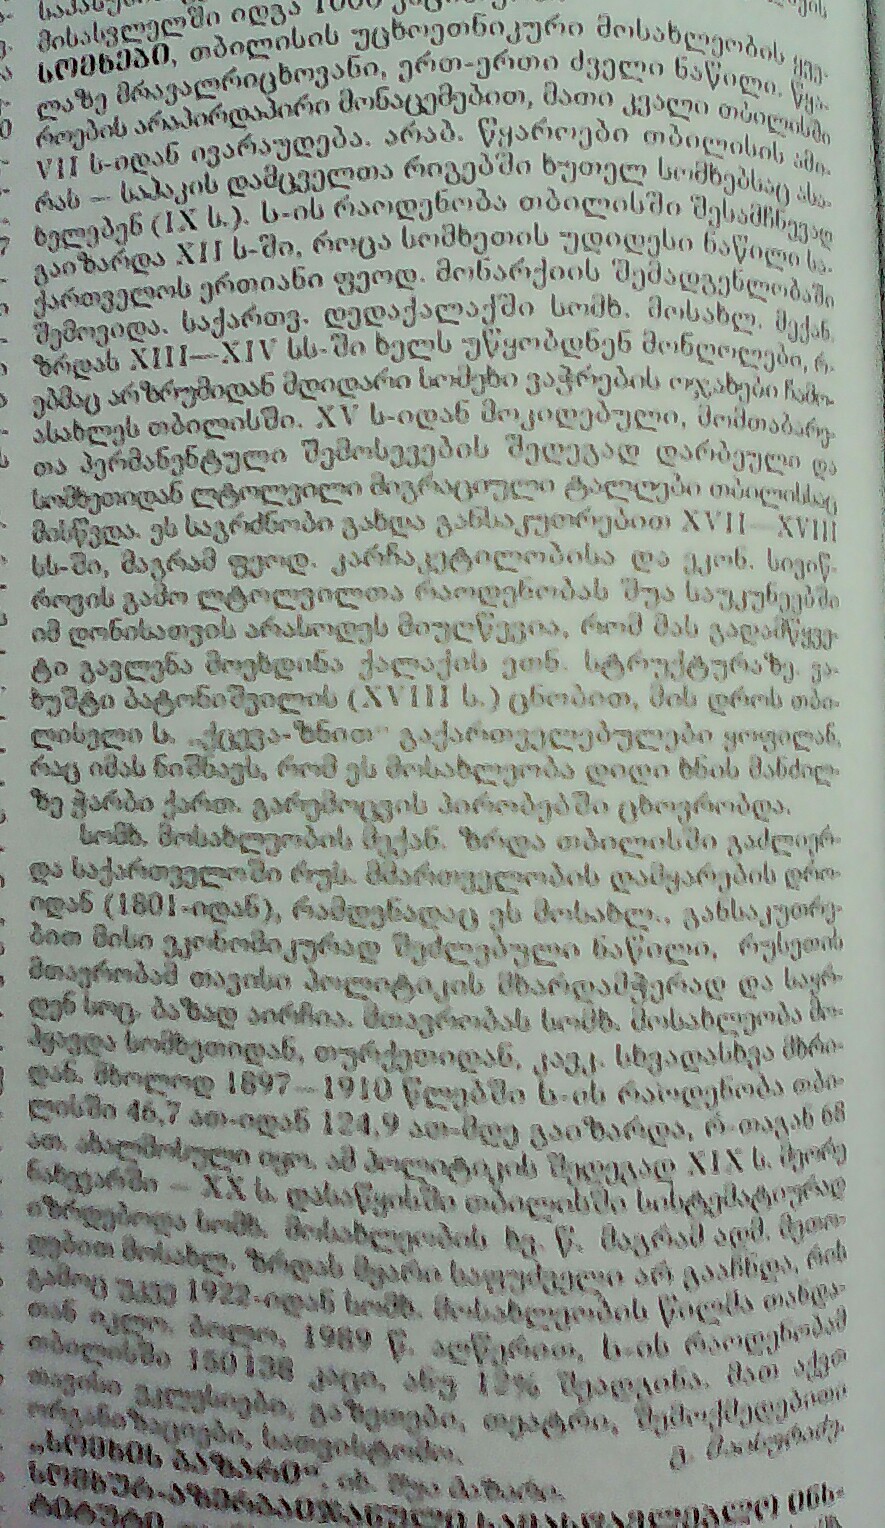 მისასვლელში იდგა 1000
სომხები, თბილისის უცხოეთნიკური მოსახლეობის ყვე-
ლაზე მრავალრიცხოვანი, ერთ-ერთი ძველი ნაწილი. წყა-
როების არაპირდაპირი მონაცემებით, მათი კვალი თბილისში
VII ს-იდან ივარაუდება. არაბ. წყაროები თბილისის ამი-
რას — საჰაკის დამცველთა რიგებში ხუთელ სომხებსაც ასა-
ხელებენ (IX ს.). ს-ის რაოდენობა თბილისში შესამჩნევად
გაიზარდა XII ს-ში, როცა სომხეთის უდიდესი ნაწილი სა-
ქართველოს ერთიანი ფეოდ. მონარქიის შემადგენლობაში
შემოვიდა. საქართვ. დედაქალაქში სომხ. მოსახლ. მექან.
ზრდას XIII—XIV სს-ში ხელს უწყობდნენ მონღოლები, რ-
ებმაც არზრუმიდან მდიდარი სომეხი ვაჭრების ოჯახები ჩამო-
ასახლეს თბილისში. XV ს-იდან მოკიდებული, მომთაბარე-
თა პერმანენტული შემოსევების შედეგად დარბეული და
სომხეთიდან ლტოლვილი მიგრაციული ტალღები თბილისსაც
მისწვდა. ეს საგრძნობი გახდა განსაკუთრებით XVII—XVIII
სს-ში, მაგრამ ფეოდ. კარჩაკეტილობისა და ეკონ. სივიწ-
როვის გამო ლტოლვილთა რაოდენობას შუა საუკუნეებში
იმ დონისათვის არასოდეს მიუღწევია, რომ მას გადამწყვე-
ტი გავლენა მოეხდინა ქალაქის ეთნ. სტრუქტურაზე. ვა-
ხუშტი ბატონიშვილის (XVIII ს.) ცნობით, მის დროს თბი-
ლისელი ს. „ქცევა-ზნით“ გაქართველებულები ყოფილან,
რაც იმას ნიშნავს, რომ ეს მოსახლეობა დიდი ხნის მანძილ-
ზე ჭარბი ქართ. გარემოცვის პირობებში ცხოვრობდა.
სომხ. მოსახლეობის მექან. ზრდა თბილისში გაძლიერ-
და საქართველოში რუს. მმართველობის დამყარების დრო-
იდან (1801-იდან), რამდენადაც ეს მოსახლ., განსაკუთრე-
ბით მისი ეკონომიკურად შეძლებული ნაწილი, რუსეთის
მთავრობამ თავისი პოლიტიკის მხარდამჭერად და საყრ-
დენ სოც. ბაზად აირჩია. მთავრობას სომხ. მოსახლეობა მო-
ჰყავდა სომხეთიდან, თურქეთიდან, კავკ. სხვადასხვა მხრი-
დან. მხოლოდ 1897—1910 წლებში ს-ის რაოდენობა თბი-
ლისში 46,7 ათ-იდან 124,9 ათ-მდე გაიზარდა, რ-თაგან 68
ათ. ახალმოსული იყო. ამ პოლიტიკის შედეგად XIX ს. მეორე
ნახევარში — XX ს. დასაწყისში თბილისში სისტემატიურად
იზრდებოდა სომხ. მოსახლეობის ხვ. წ. მაგრამ ადმ. მეთო-
დებით მოსახლ. ზრდას მყარი საფუძველი არ გააჩნდა, რის
გამოც უკვე 1922-იდან სომხ. მოსახლეობის წილმა თანდა-
თან იკლო. ბოლო, 1989 წ. აღწერით, ს-ის რაოდენობამ
თბილისში 150138 კაცი, ანუ 12% შეადგინა. მათ აქვთ
თავისი ეკლესიები, გაზეთები, თეატრი, შემოქმედებითი
ორგანიზაციები, სათვისტომო.
„სომხის ბაზარი“, იხ. შუა ბაზარი.
სომხურ-აზერბაიჯანული სამასწავლებლო ინს-
ტიტუტი